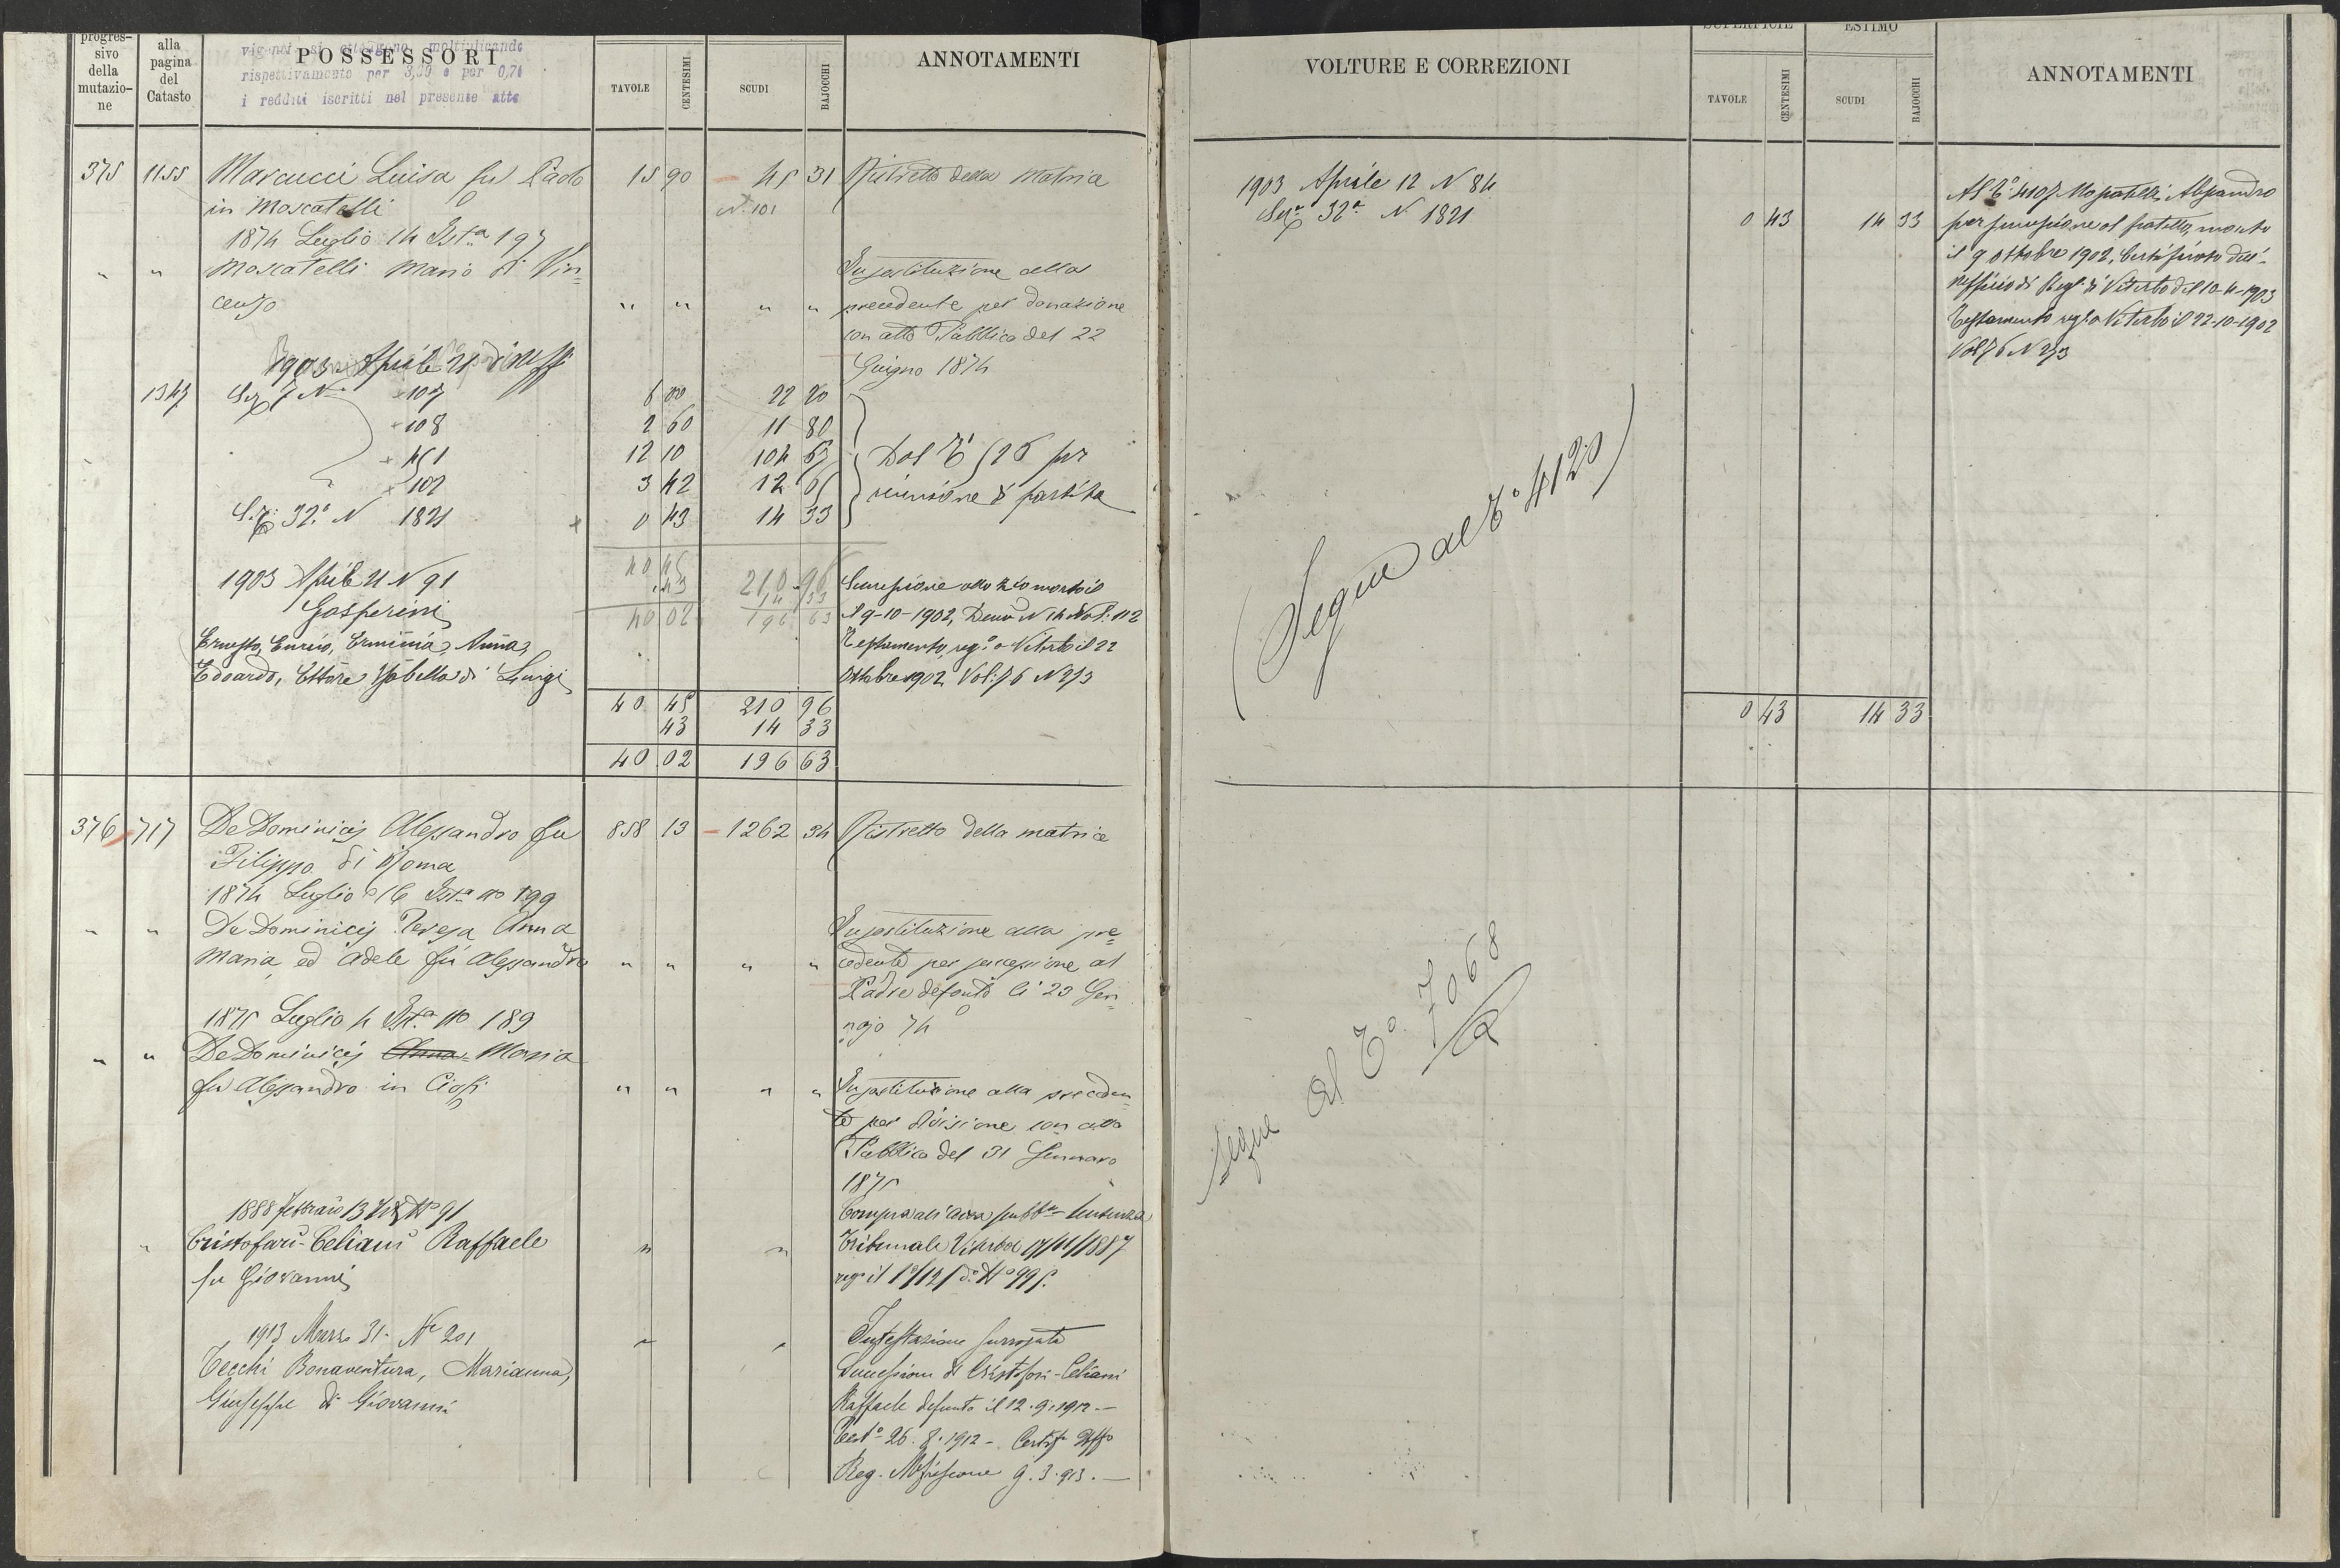 progres-
sivo
della
mutazio-
ne
alla
pagina
del
Catasto
POSSESSORI
moltiplicando
rispettivamente per 3,59 e per 0,71
i redditi iscritti nel presente atto
TAVOLE
CENTESIMI
SCUDI
BAJOCCHI
ANNOTAMENTI
375 1155 Marcucci Luisa fu Paolo 15 90 45 31 Ristretto della Matrice
in Moscatelli N. 101
1874 Luglio 14 Ist.a 197
" " Moscatelli Mario di Vin= Supstituzione alla
cenzo " " " " precedente per donazione
con atto Pubblico del 22
Giugno 1874
1903 Aprile 21
1347 Sez. 7 N. 107 6 00 22 20
108 2 60 11 80
451 12 10 104 67
102 3 42 12 65
Sez. 32.a N 1821 0 43 14 33
Dal T.o 526 per
riunione di partita
40 45 210 96
43 14 33
40 02 196 63
1903 Aprile 21 N 91
Gasperini
Ernesto, Enrico, Erminia, Anna,
Edoardo, Ettore Isabella di Luigi
Successione allo zio morto il
9-10-1902, Den. N 14 Vol. 112
Testamento reg.o a Viterbo il 22
Ottobre 1902 Vol. 76 N 273
40 45 210 96
43 14 33
40 02 196 63
376 717 De Dominicis Alessandro fu 858 13 1262 34 Ristretto della matrice
Filippo di Roma
1874 Luglio 16 Ist.a no 199
" " De Dominicis Teresa Anna Supstituzione alla pre=
Maria ed Adele fu Alessandro " " " " cedente per successione al
Padre defonto li 23 Gen
najo 74
1875 Luglio 4 Ist.a no 189
" " De Dominicis Anna Maria
fu Alessandro in Cioffi " " " " Supstituzione alla preceden=
te per divisione con atto
Pubblico del 31 Gennaro
1875
1888 Febbraio 13 No 91 Compra all'asta pubb.a Sentenza
" Cristofari-Celiani Raffaele " " Tribunale Viterbo 17/11/1887
fu Giovanni reg.o il 1/12/ d.o No 995.
1913 Marzo 31. N. 201 " " Intestazione surrogata
Cecchi Bonaventura, Marianna, Successione di Cristofari-Celiani
Giuseppe di Giovanni Raffaele defunto il 12.9.1912.—
Test.o 26.8.1912 - Certif. Uff.o
Reg. Mfiascone 9.3.913.—
VOLTURE E CORREZIONI
SUPERFICIE
ESTIMO
TAVOLE
CENTESIMI
SCUDI
BAJOCCHI
ANNOTAMENTI
1903 Aprile 12 N 84
Sez.e 32.a N 1821 0 43 14 33
Al T.o 4107 Moscatelli Alessandro
per successione al fratello, morto
il 9 Ottobre 1902, Certificato dell'
ufficio di Reg. di Viterbo del 10-4-1903
Testamento reg. a Viterbo il 22-10-1902
Vol 76 N 273
(Segue al T.o 4120)
0 43 14 33
Segue al T.o 7068